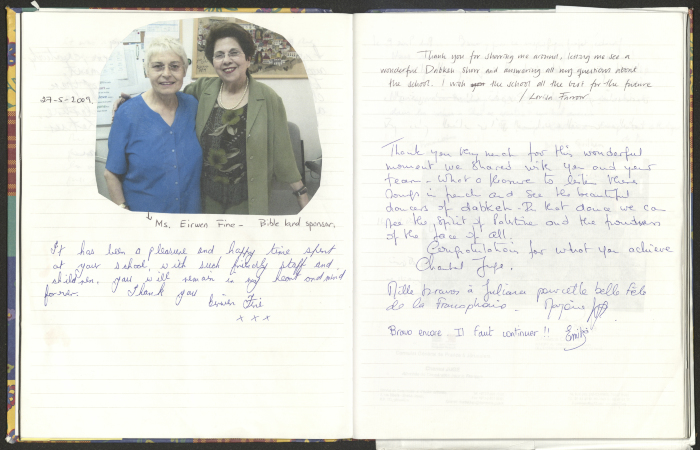 27-5-2009.
Ms. Eirwen Fine - Bible land sponsor.
It has been a pleasure and happy time spent
at your school, with such friendly staff and
children, you will remain in my heart and mind
forever. Thank you
Eirwen Fine
x x x
Thank you for showing me around, letting me see a
wonderful Dabkeh show and answering all my questions about
the school. I wish the school all the best for the future
/ Farrow
Thank you very much for this wonderful
moment we shared with you and your
team - What a pleasure to listen these
songs in french and see the beautiful
dancers of dabkeh. In that dance we can
see the spirit of Palestine and the proudness
of the face of all.
Congratulation for what you achieve
Chantal
Mille bravos à Juliana pour cette belle fête
de la Francophonie.
Bravo encore. Il faut continuer !! Emilie